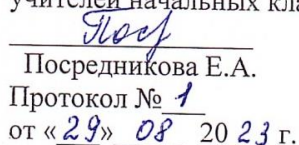 учителей начальных кла
Посредникова Е.А.
Протокол № 1
от «29» 08 2023 г.